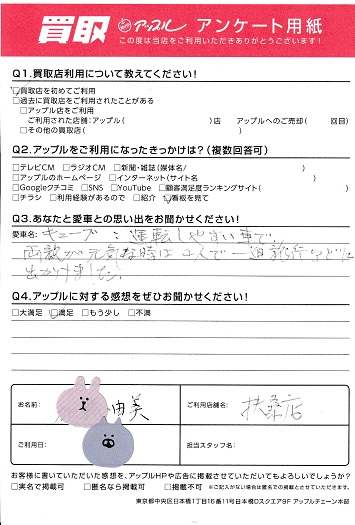 買取 アップル アンケート用紙
この度は当店をご利用いただきありがとうございます！
Q1.買取店利用について教えてください！
☑買取店を初めてご利用
□過去に買取店をご利用されたことがある
□アップル店をご利用
ご利用された店舗：アップル（ ）店 アップルへのご売却（ 回目）
□その他の買取店（ ）
Q2.アップルをご利用になったきっかけは？（複数回答可）
□テレビCM □ラジオCM □新聞・雑誌（媒体名/ ）
□アップルのホームページ □インターネット（サイト名 ）
□Googleクチコミ □SNS □YouTube □顧客満足度ランキングサイト（ ）
□チラシ □利用経験があるので □紹介 ☑看板を見て
Q3.あなたと愛車との思い出をお聞かせください！
愛車名：キューブ：運転しやすい車で、
両親が元気な時は4人で一泊旅行などに
出かけました。
Q4.アップルに対する感想をぜひお聞かせください！
□大満足 ☑満足 □もう少し □不満
お名前： 由美
ご利用店舗名： 扶桑店
ご利用日：
担当スタッフ名：
お客様に書いていただいた感想を、アップルHPや広告に掲載させていただいてもよろしいでしょうか？
□実名で掲載可 □匿名なら掲載可 □掲載不可 ※ご記入がない場合は匿名での掲載とさせていただきます。
東京都中央区日本橋1丁目16番11号日本橋Dスクエア9F アップルチェーン本部